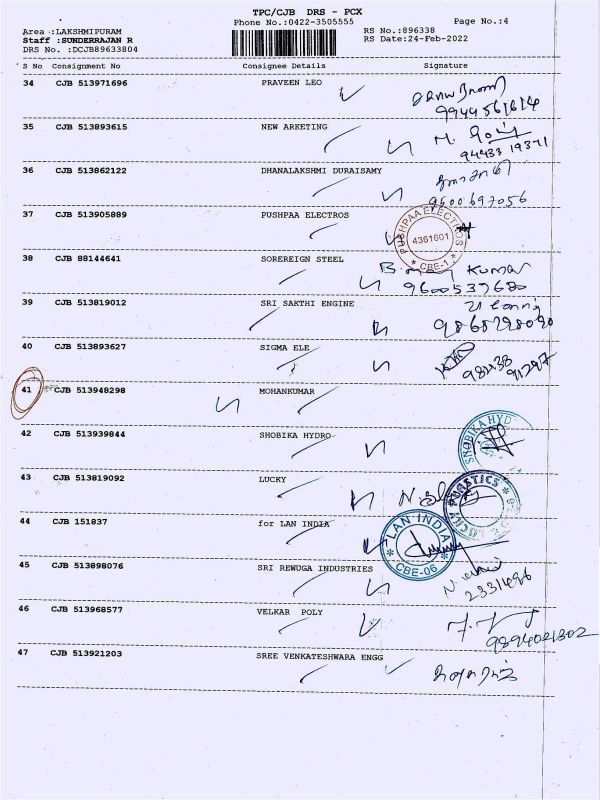 TPC/CJB DRS - PCX
Phone No.:0422-3505555 Page No.:4
Area :LAKSHMIPURAM RS No.:896338
Staff :SUNDERRAJAN R RS Date:24-Feb-2022
DRS No. :DCJB89633804
S No Consignment No Consignee Details Signature
34 CJB 513971696 PRAVEEN LEO
9944561614
35 CJB 513893615 NEW ARKETING
94433 19371
36 CJB 513862122 DHANALAKSHMI DURAISAMY
9500697056
37 CJB 513905889 PUSHPAA ELECTROS
PUSHPAA ELECTROS 4361601 CBE-1
38 CJB 88144641 SOREREIGN STEEL
Kumar
9600539680
39 CJB 513819012 SRI SAKTHI ENGINE
40 CJB 513893627 SIGMA ELE
41 CJB 513948298 MOHANKUMAR
42 CJB 513939844 SHOBIKA HYDRO
SHOBIKA HYD
43 CJB 513819092 LUCKY
PLASTICS
44 CJB 151837 for LAN INDIA
LAN INDIA CBE-06
45 CJB 513898076 SRI REWUGA INDUSTRIES
2331496
46 CJB 513968577 VELKAR POLY
9894021302
47 CJB 513921203 SREE VENKATESHWARA ENGG